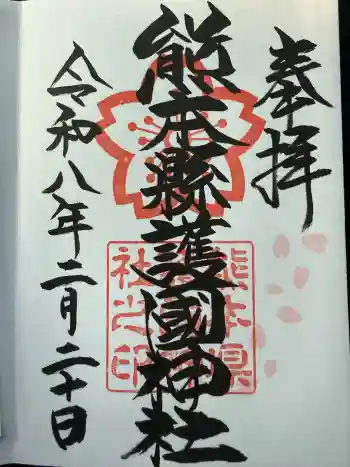 奉拝
熊本縣護國神社
令和八年二月二十日
熊本県
社之印